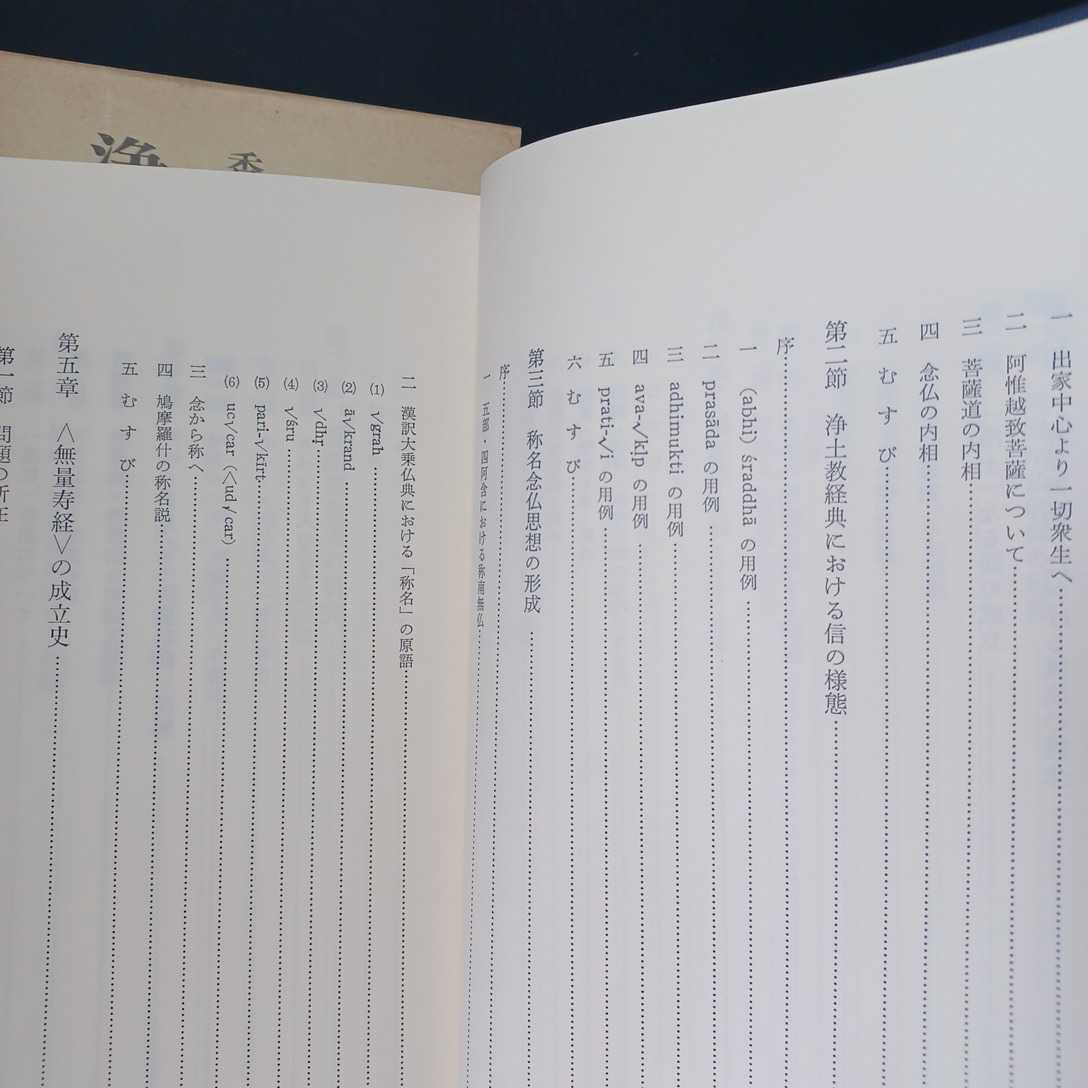 一 出家中心より一切衆生へ
二 阿惟越致菩薩について
三 菩薩道の内相
四 念仏の内相
五 むすび
第二節 浄土教経典における信の様態
序
一 (abhi) śraddhā の用例
二 prasāda の用例
三 adhimukti の用例
四 ava-√kḷp の用例
五 prati-√i の用例
六 むすび
第三節 称名念仏思想の形成
序
一 五部・四阿含における称南無仏
二 漢訳大乗仏典における「称名」の原語
(1) √grah
(2) ā√krand
(3) √dhṛ
(4) √śru
(5) pari-√kīrt
(6) uc√car (<ud√car)
三 念から称へ
四 鳩摩羅什の称名説
五 むすび
第五章 <無量寿経>の成立史
第一節 問題の所在
浄